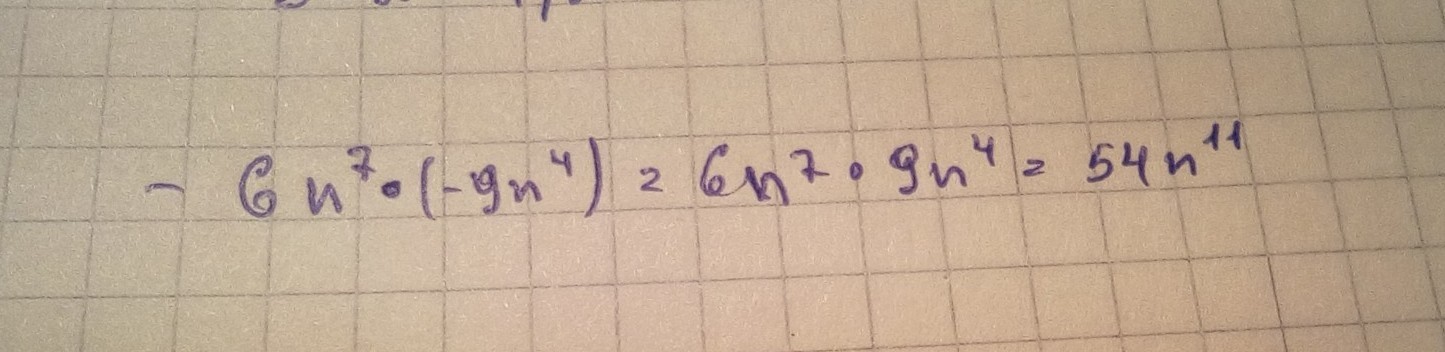 - 6n⁷•(-9n⁴) = 6n⁷•9n⁴ = 54n¹¹